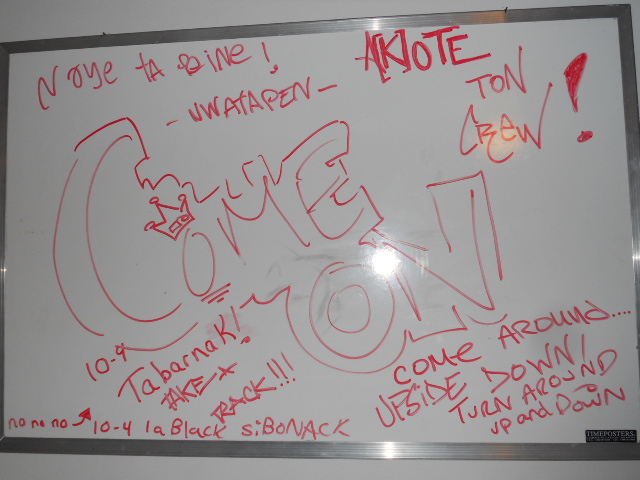 Noye ta peine!
A[K]OTE
TON
CREW!
- WWATAPEN -
COME
ON
10-4
TabarnaK!
TAKE-A
BACK!!!
COME AROUND....
UPSIDE DOWN!
TURN AROUND
up and DOWN
no no no 10-4 la Black siBoNACK
TIMEPOSTERS